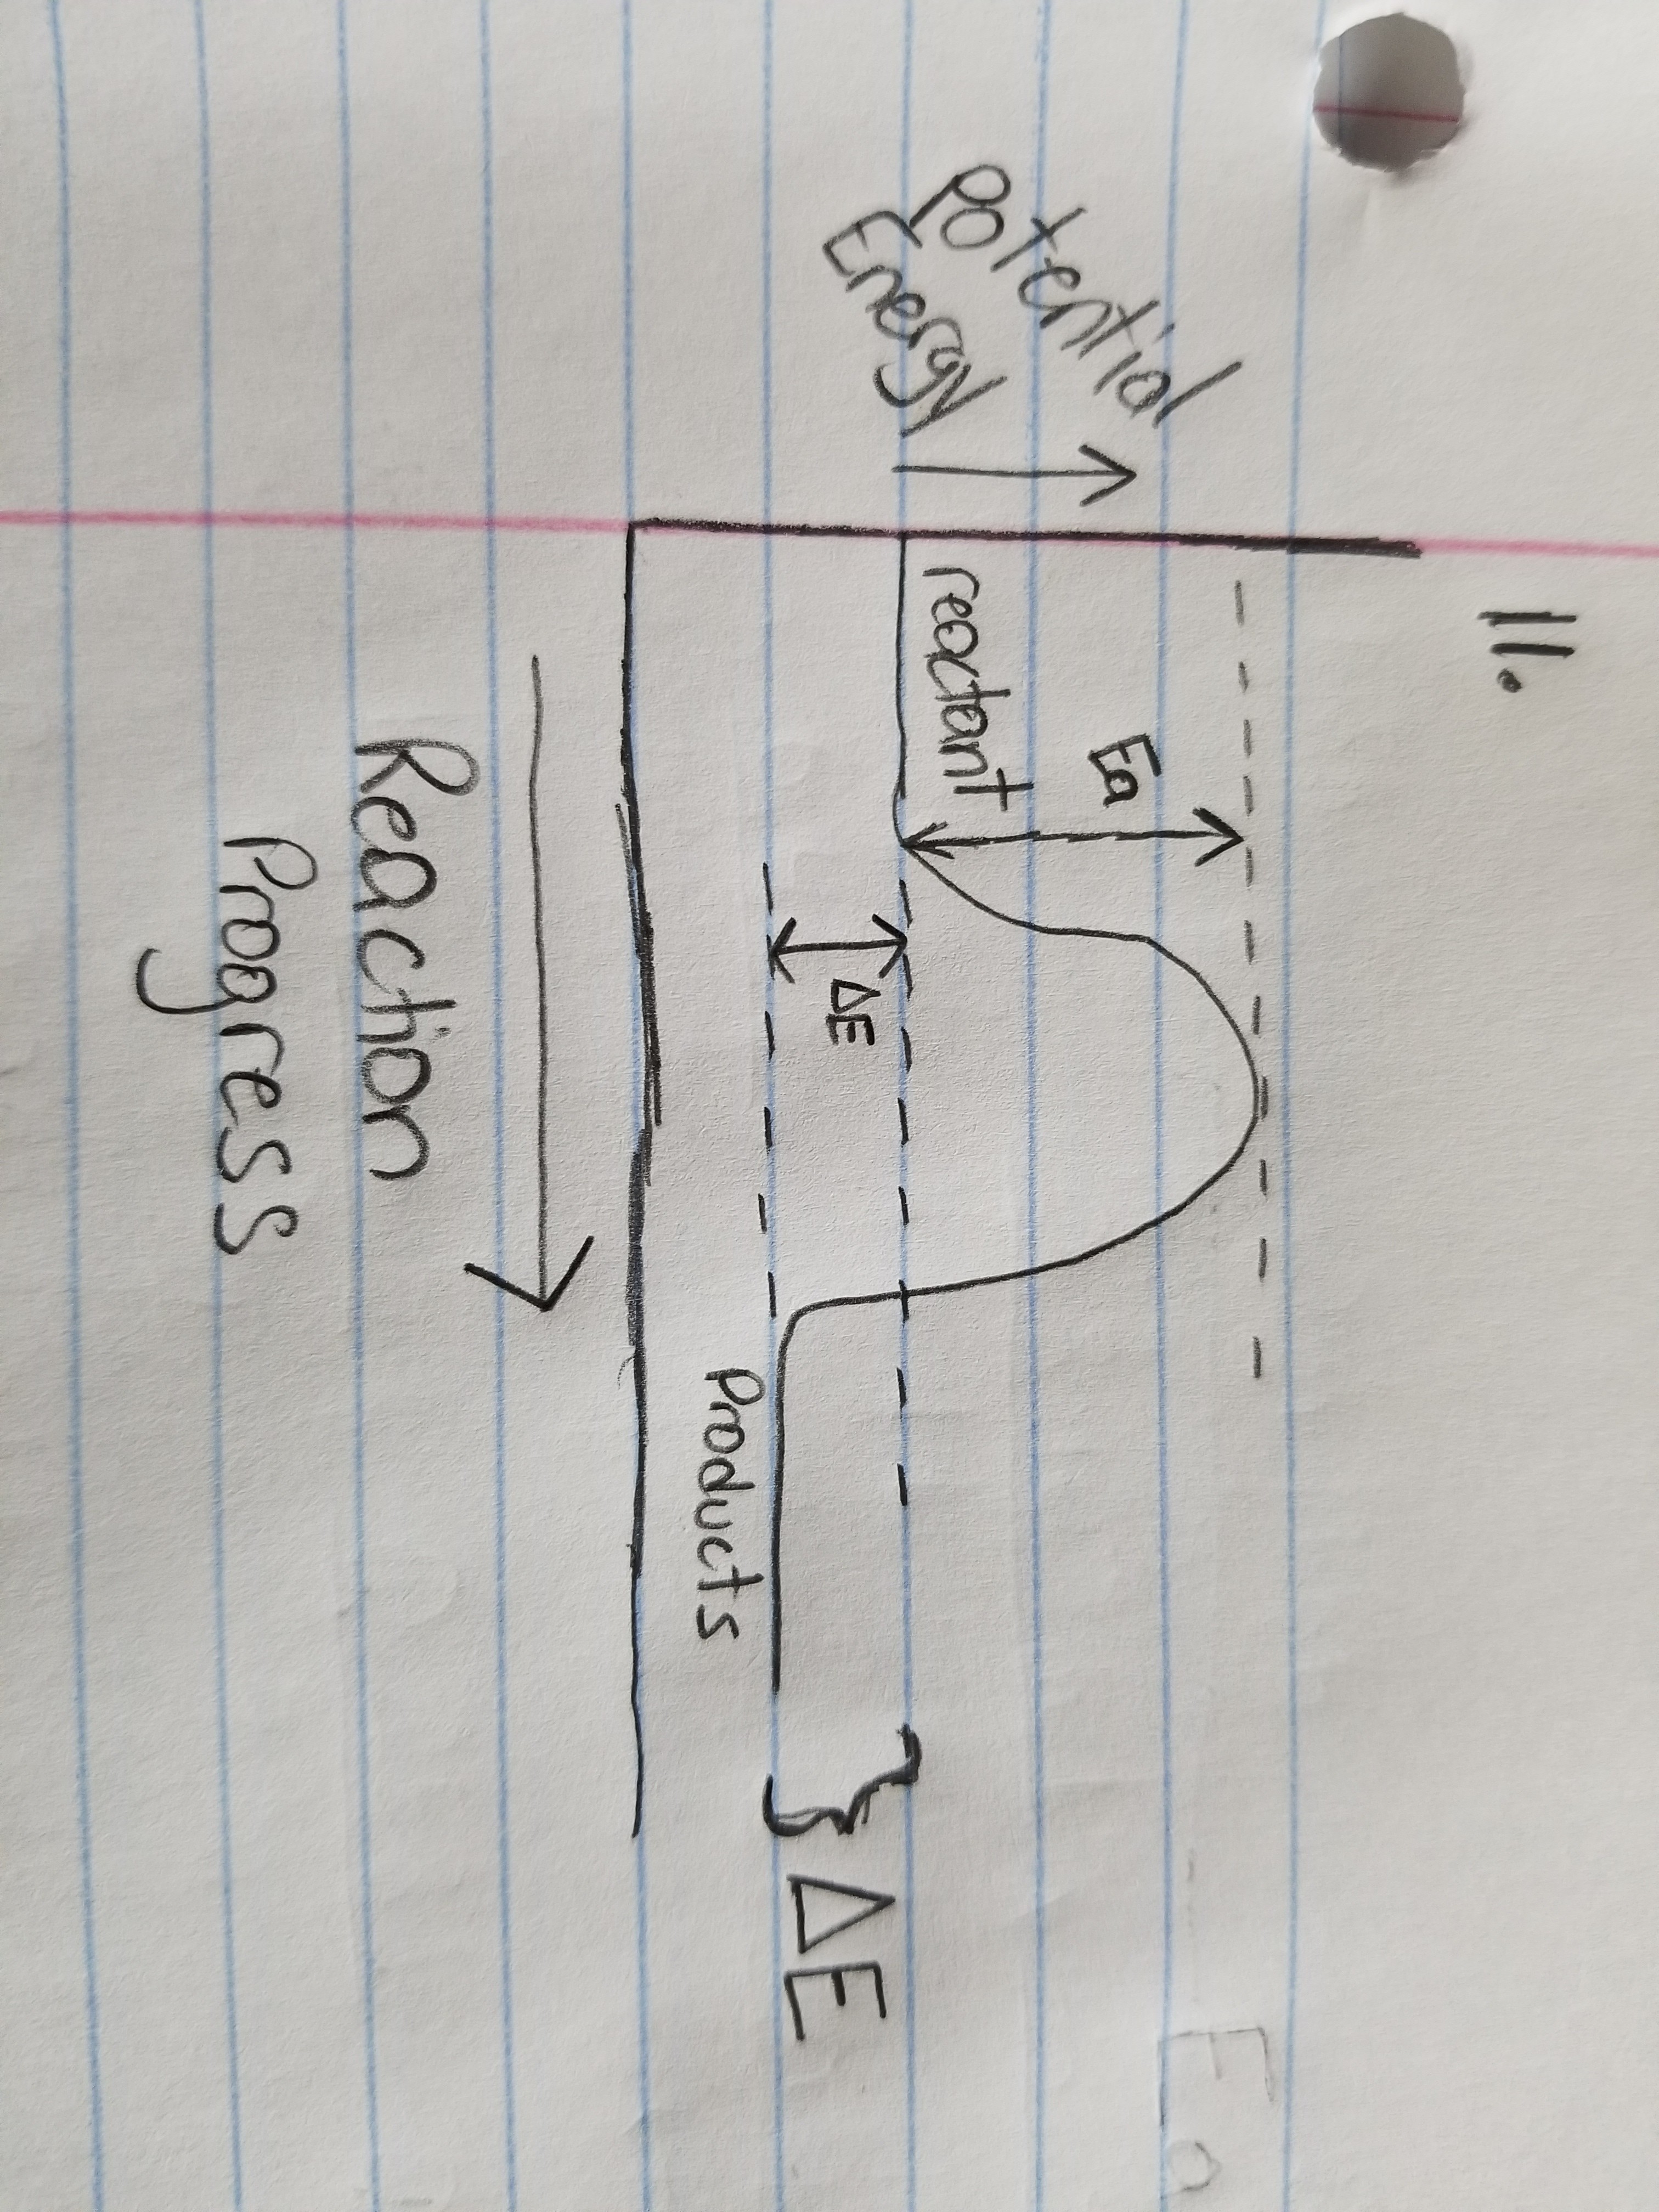 11.
Potential
Energy
Ea
reactant
ΔE
ΔE
Products
Reaction
Progress
Ea